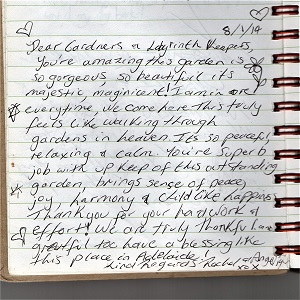 8/1/14
Dear Gardners & Labyrinth Keepers,
You're amazing this garden is
so gorgeous, so beautifull it's
majestic, maginicent! I am in awe
everytime we come here this truly
feels like walking through
gardens in heaven. Its so peaceful,
relaxing & calm. You're superb
job with up keep of this outstanding
garden, brings sense of peace,
joy, harmony & child like happiness
Thankyou for your hardwork &
effort! We are truly thankful &
greatful too have a blessing like
this place in Adelaide!
Kind regards Rachel &
xox